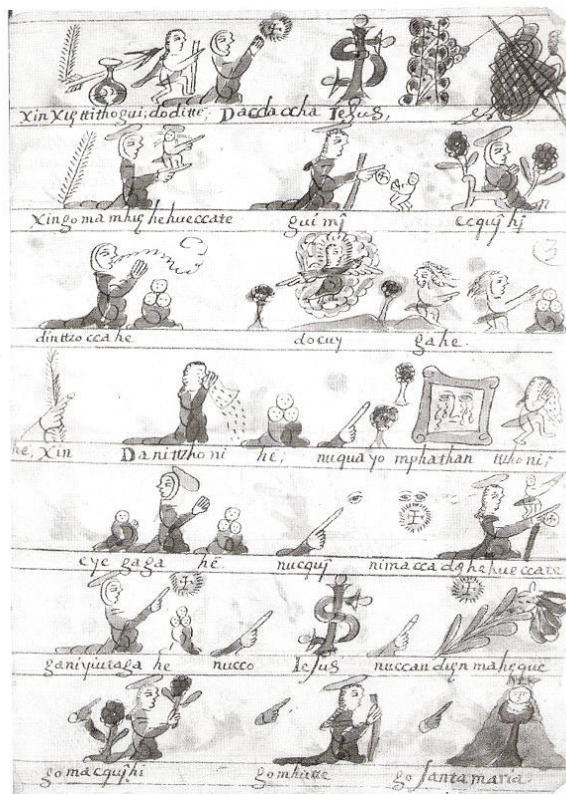 xin xiqttithogui; do ditte; Daccaccha Iesus,
xingo ma mhiq hehueccate gui mĵ ecquĵhĵ
dinttzoccahe do cuy gahe.
he, xin Danittzho ni he; nuqua yo mphathan ttzho ni;
eye gaga he nucquĵ nimaccadqhehueccate
ganiyiutaga he nucco Iesus nuccandiqn maheque
go macquĵhĵ go mhitte go santa maria